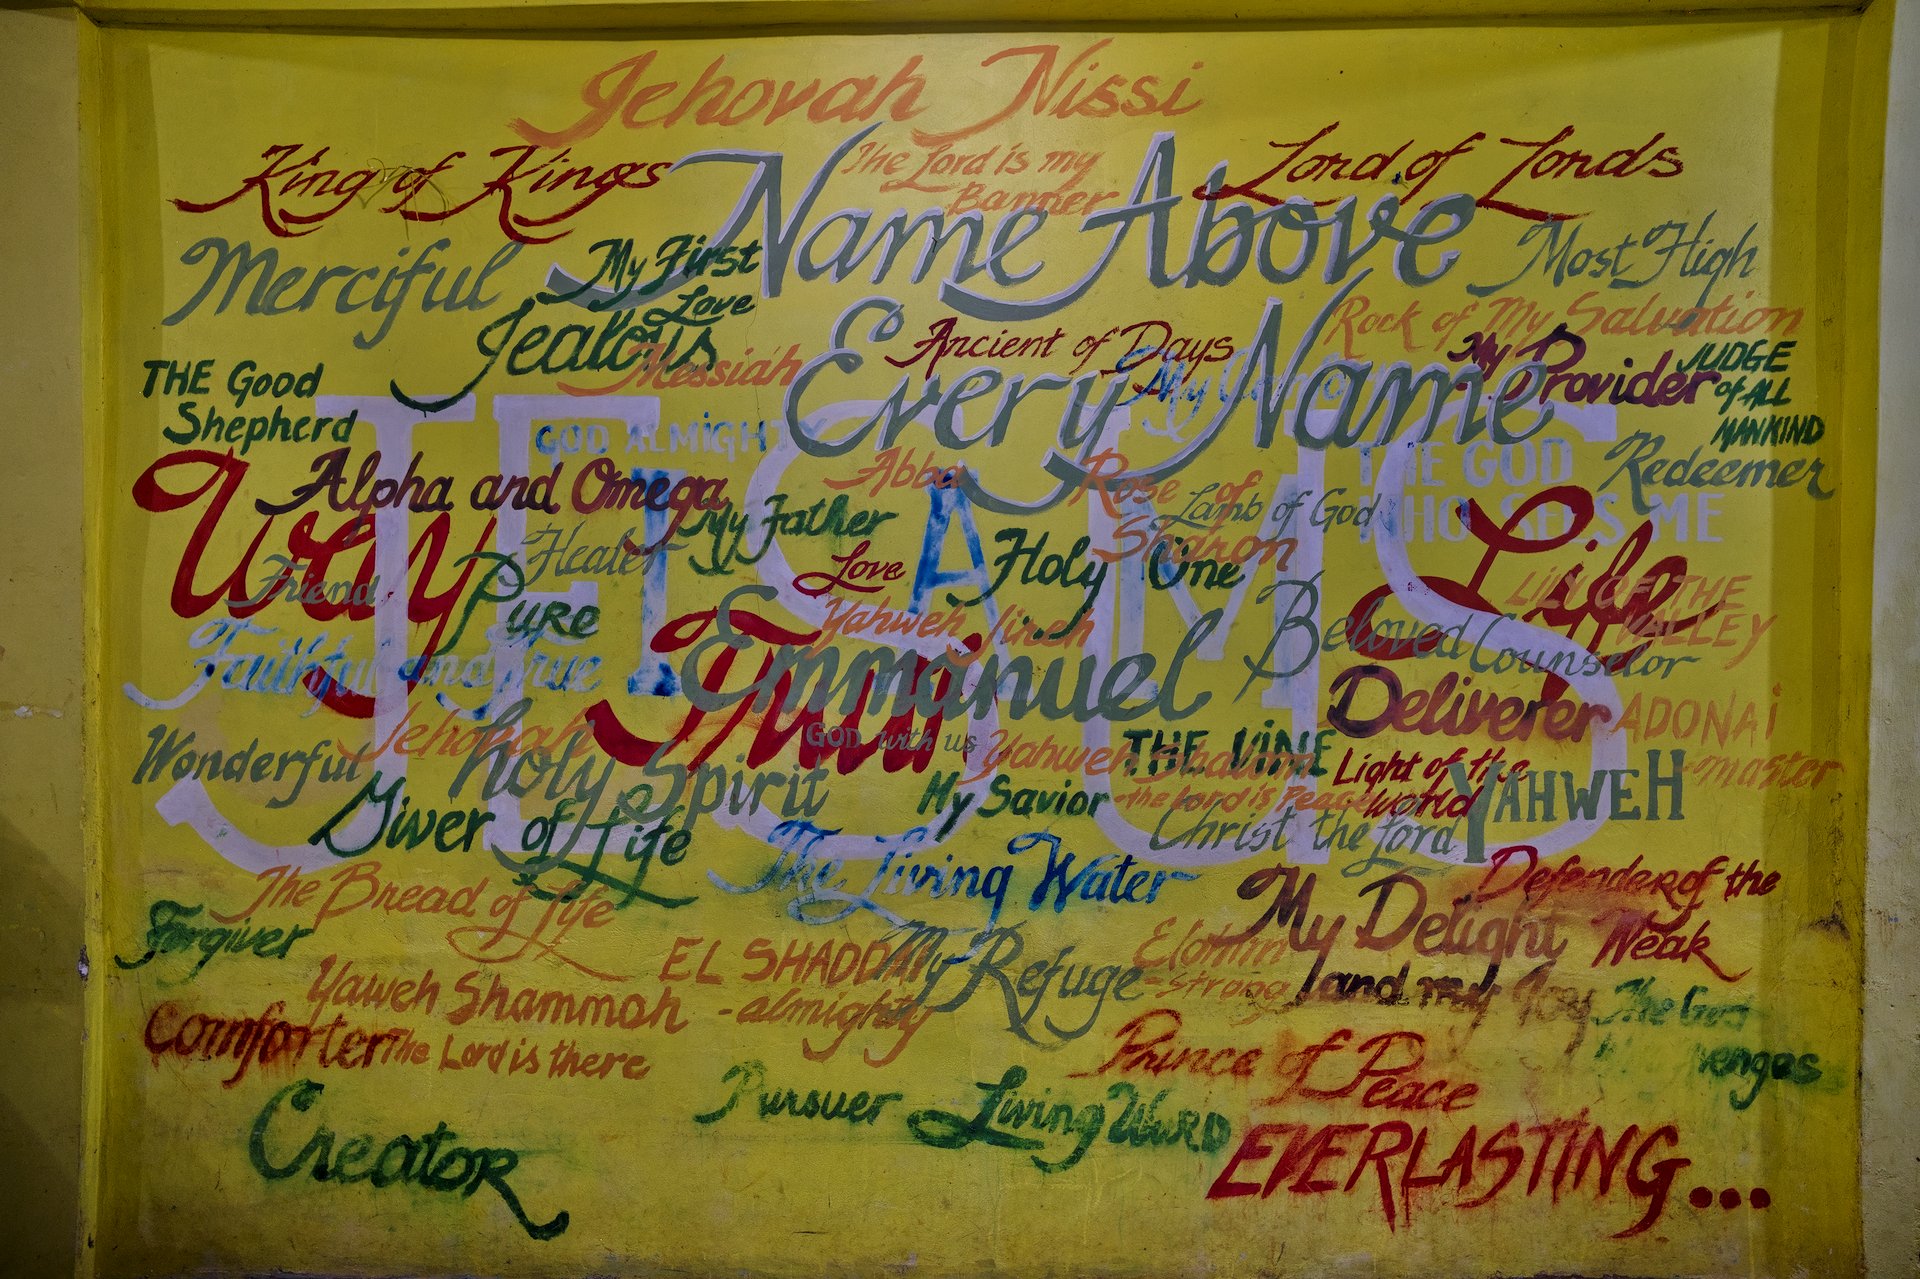 Jehovah Nissi
King of Kings
The Lord is my
Banner
Lord of Lords
Name Above
Every Name
Merciful
My First
Love
Most High
Jealous
Messiah
Ancient of Days
Rock of My Salvation
My Provider
JUDGE
of ALL
MANKIND
THE Good
Shepherd
JESUS
GOD ALMIGHTY
THE GOD
WHO SEES ME
Redeemer
Way
Alpha and Omega
Abba
Rose of
Sharon
Lamb of God
My Father
Healer
I AM
Love
Holy One
Life
Friend
Pure
LILY OF THE
VALLEY
Yahweh Jireh
Beloved
Counselor
Faithful and True
Emmanuel
GOD with us
Deliverer
ADONAI
-master
Wonderful
Holy Spirit
Yahweh Shalom
-the Lord is Peace
THE VINE
Light of the
world
YAHWEH
My Savior
Giver of Life
Christ the Lord
The Living Water
The Bread of Life
My Delight
and my Joy
Defender of the
Weak
Forgiver
EL SHADDAI
-almighty
My Refuge
Elohim
-strong
Yaweh Shammah
The Lord is there
Comforter
Prince of Peace
Pursuer
Living WORD
Creator
EVERLASTING...